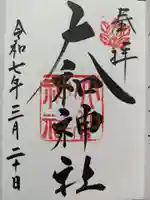 奉拝
大和神社
令和七年三月二十日